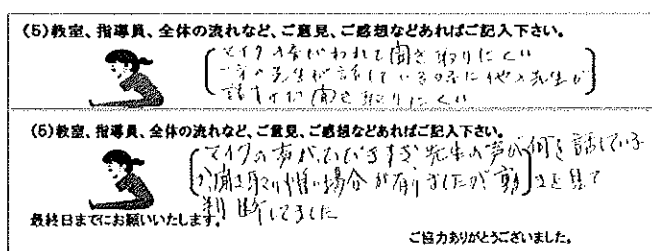 (5)教室、指導員、全体の流れなど、ご意見、ご感想などあればご記入下さい。
マイクの音がわれて聞き取りにくい
一方の先生が話している時に他の先生が
話すので聞き取りにくい
(5)教室、指導員、全体の流れなど、ご意見、ご感想などあればご記入下さい。
マイクの声がひびきすぎ先生の声が何を話しているか
聞き取り惜い場合が有りましたが動きを見て
判断してました
最終日までにお願いいたします。
ご協力ありがとうございました。